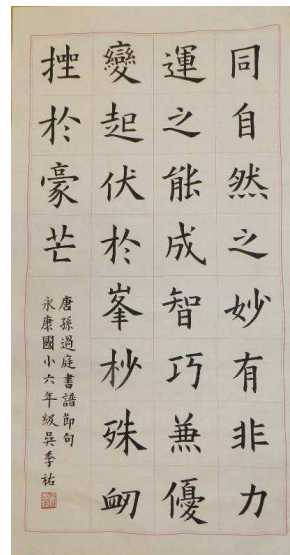 同自然之妙有非力
運之能成智巧兼優
變起伏於峯杪殊衂
挫於豪芒
唐孫過庭書譜節句
永康國小六年級吳季祐